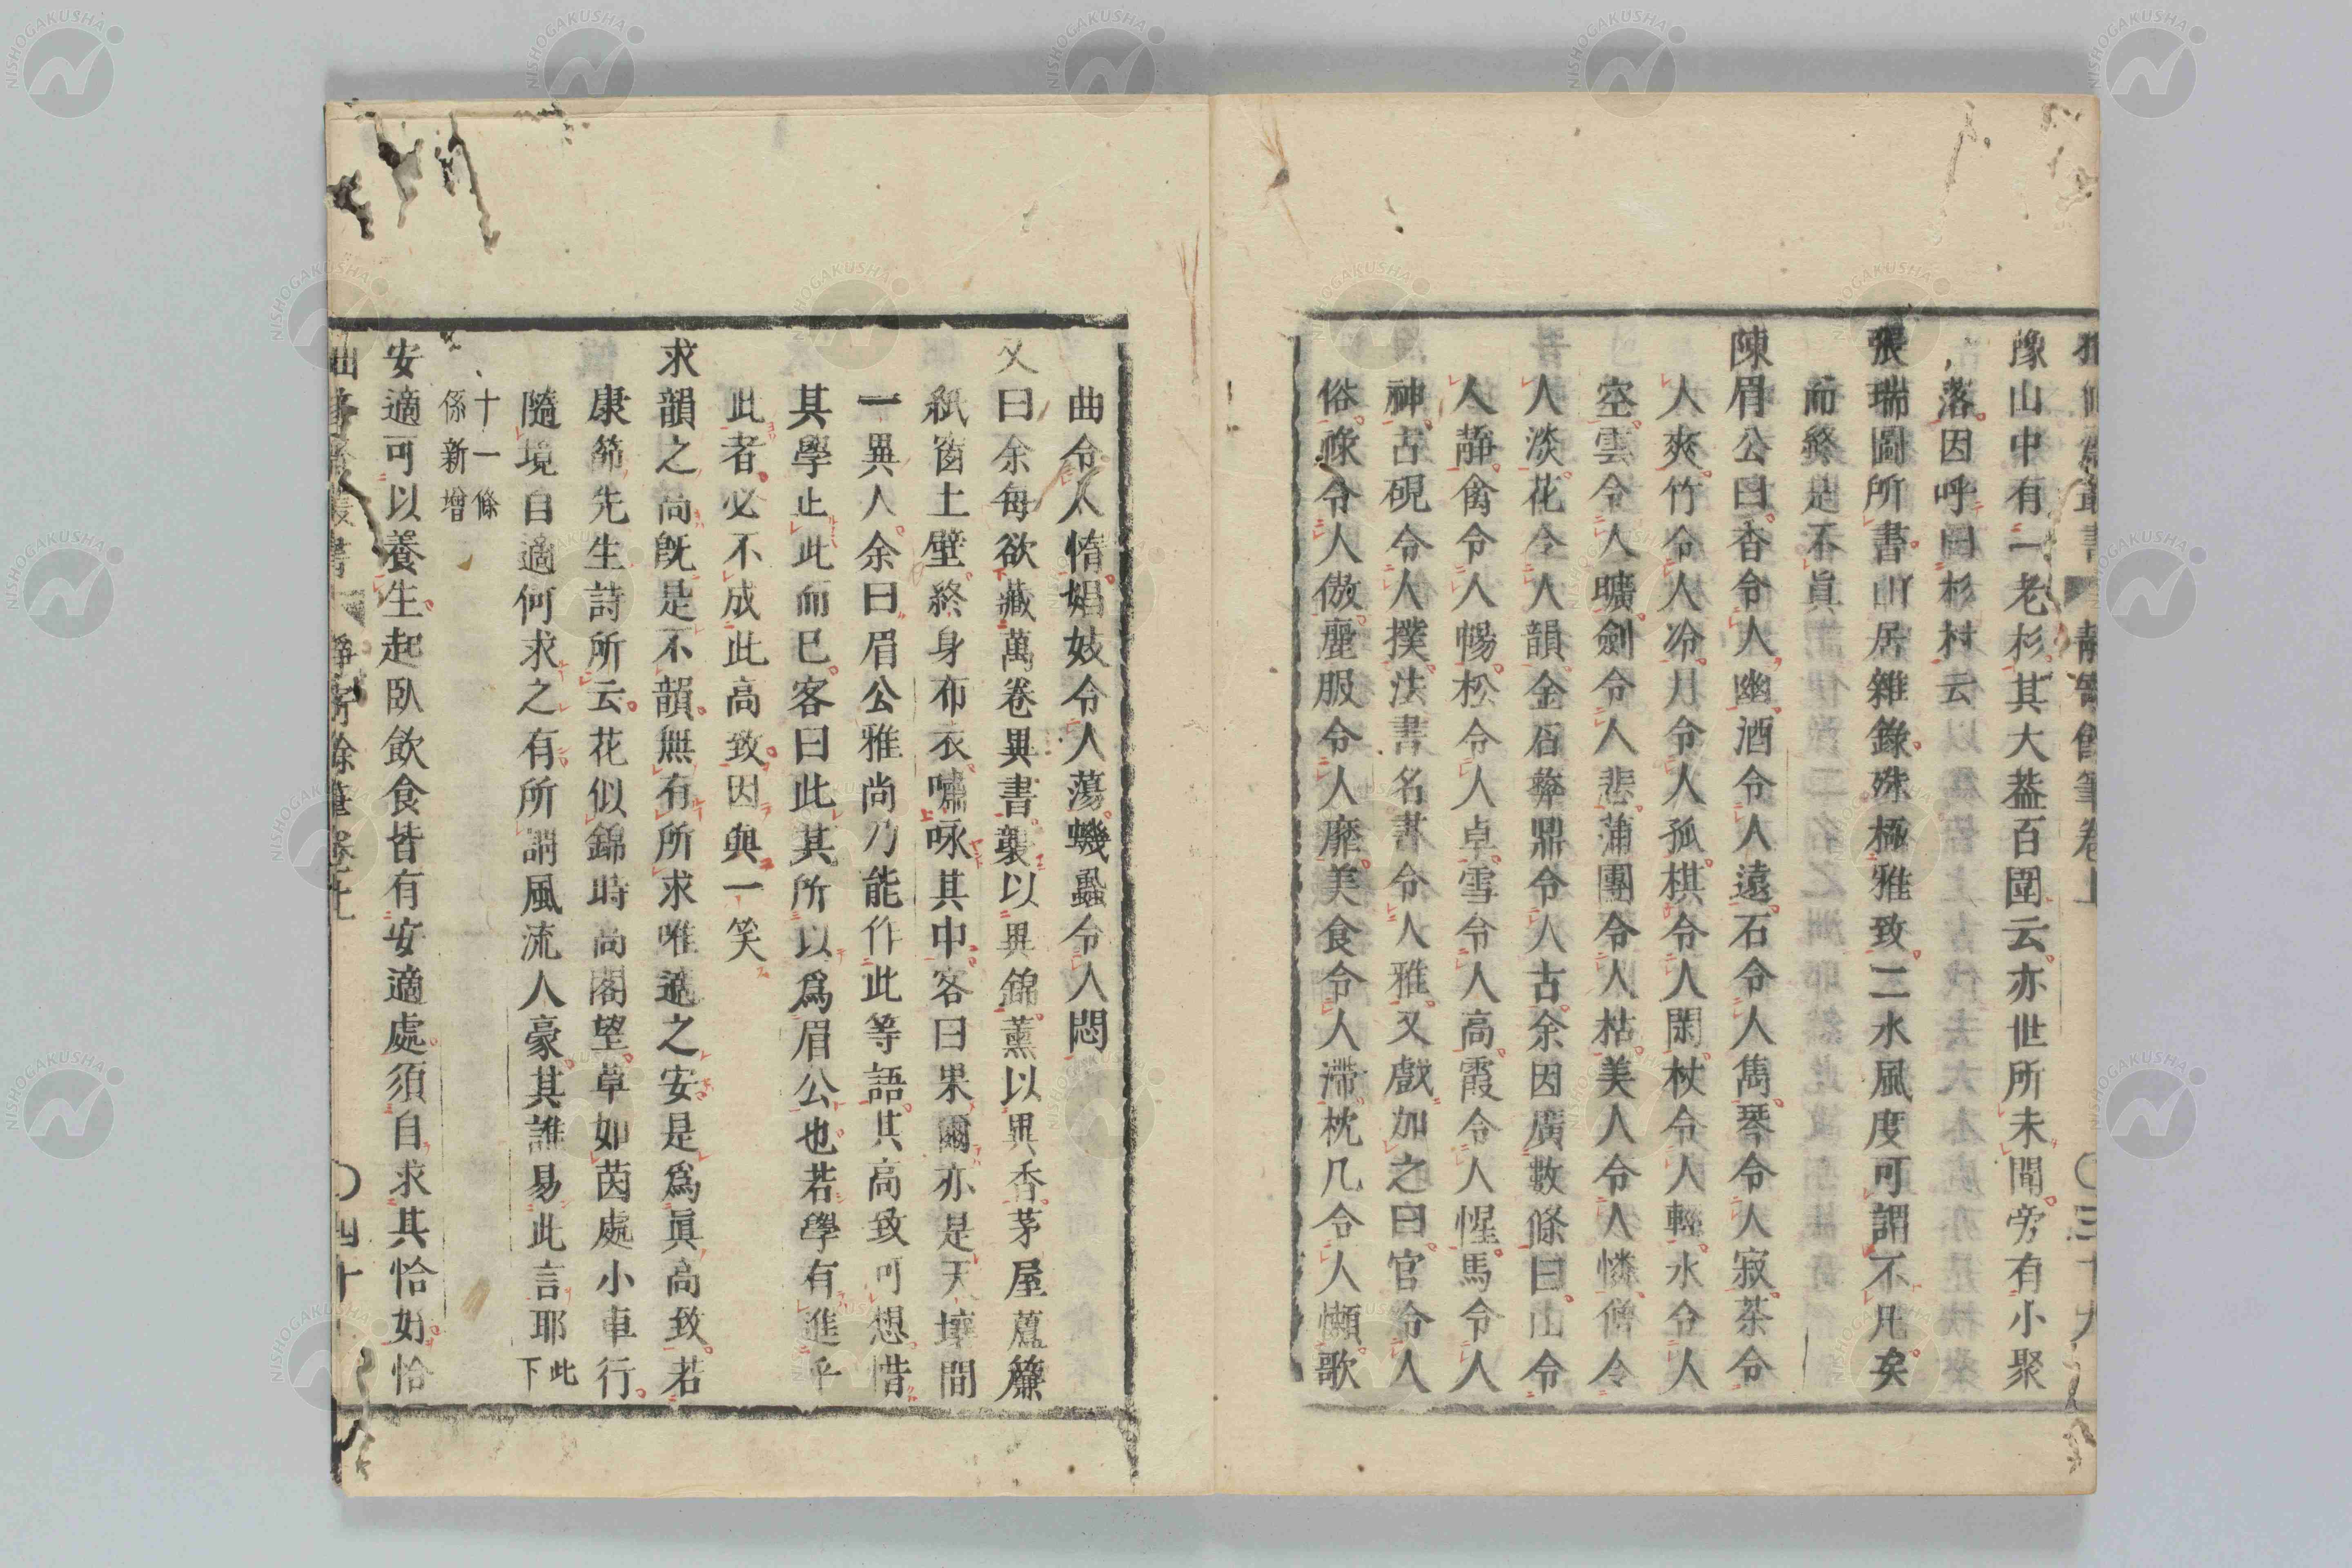 豫山中有一老杉其大葢百圍云亦世所未聞旁有小聚
落因呼曰杉村云
張瑞圖所書山居雜錄殊極雅致二水風度可謂不凡矣
而終是不眞
陳眉公曰香令人幽酒令人遠石令人雋琴令人寂茶令
人爽竹令人冷月令人孤棋令人閑杖令人輕水令人
空雲令人曠劍令人悲蒲團令人枯美人令人憐僧令
人淡花令人韻金石彝鼎令人古余因廣數條曰山令
人靜禽令人暢松令人卓雪令人高霞令人惺馬令人
神古硯令人撲法書名書令人雅又戲加之曰官令人
俗祿令人傲麗服令人靡美食令人滯枕几令人懶歌
曲令人惰娼妓令人蕩蟣蝨令人悶
又曰余每欲藏萬卷異書襲以異錦薰以異香茅屋蘆簾
紙窗土壁終身布衣嘯咏其中客曰果爾亦是天壤間
一異人余曰眉公雅尚乃能作此等語其高致可想惜
其學止此而已客曰此其所以爲眉公也若學有進乎
此者必不成此高致因與一笑
求韻之尚旣是不韻無有所求唯適之安是爲眞高致若
康節先生詩所云花似錦時高閣望草如茵處小車行
隨境自適何求之有所謂風流人豪其誰易此言耶此下
十一條
係新增
安適可以養生起臥飲食皆有安適處須自求其恰好恰